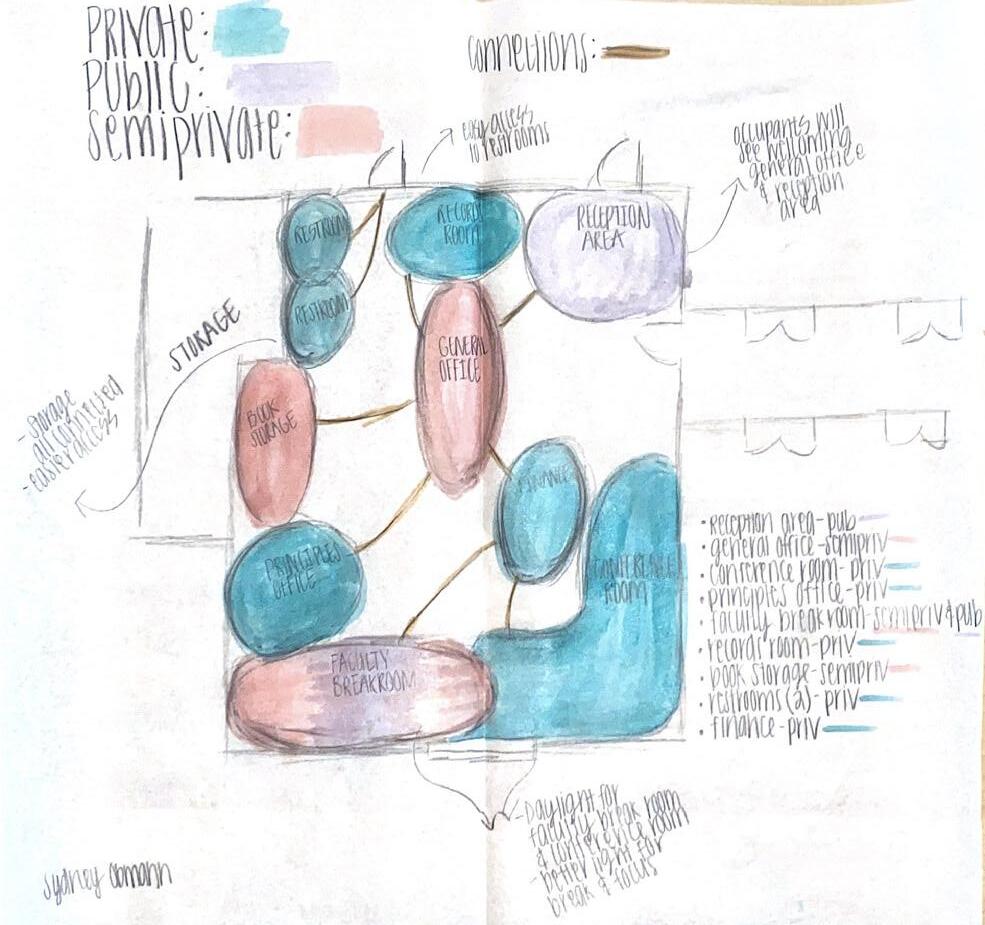 PRIVAte:
PUBlIC:
Semiprivate:
connections:
easy access
to restrooms
occupants will
see welcoming
general office
& reception
area
RESTROOM
RECORDS
ROOM
RECEPTION
AREA
RESTROOM
STORAGE
GENERAL
OFFICE
- storage
all confined
- easier access
BOOK
STORAGE
FINANCE
PRINCIPLES
OFFICE
CONFERENCE
ROOM
FACULTY
BREAKROOM
• reception area-pub
• general office-semipriv
• conference room-priv
• principles office-priv
• faculty breakroom-semipriv&pub
• records room-priv
• book storage-semipriv
• restrooms(2)-priv
• finance-priv
- Daylight for
faculty break room
& conference room
- better light for
break & focus
sydney